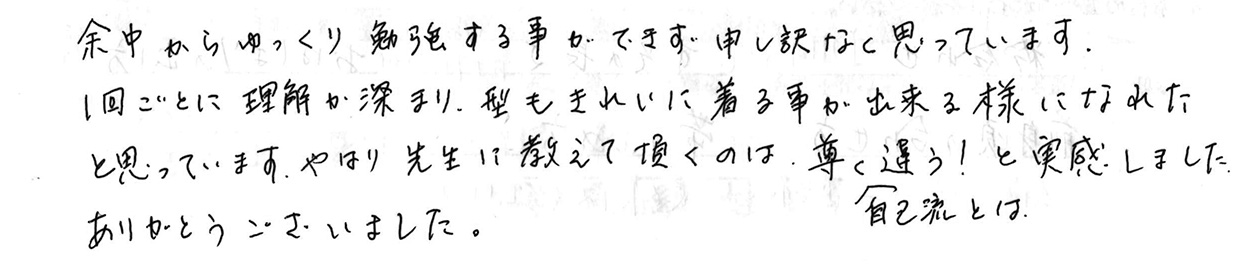 余中からゆっくり勉強する事ができず申し訳なく思っています.
1回ごとに理解が深まり.型もきれいに着る事が出来る様になれた
と思っています.やはり先生に教えて頂くのは.尊く違う!と実感しました.
自己流とは.
ありがとうございました。